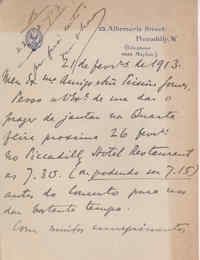 22 Albemarle Street
Piccadilly. W
(Telephone
Mayfair.)
21 fevro de 1913.
Meu Ex mo Amigo e Snr Teixeira Gomes,
Peço a V. Exa de me dar o
prazer de jantar na Quarta
feira proxima 26 fevro
no Piccadilly Hotel Restaurant
as 7.30. (ou podendo ser 7.15)
antes do para nos
dar bastante tempo.
Com muitos cumprimentos